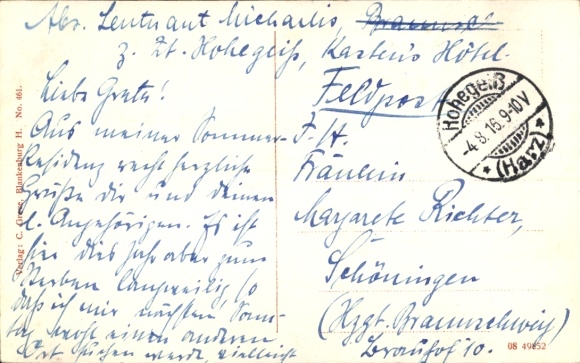 Abs. Leutnant Michaelis, Braunsch
z. Zt. Hohegeiß, Kastens Hôtel.
Feldpost
Liebe Grete!
Aus meiner Sommer-
Residenz recht herzliche
Grüße dir und deinen
l. Angehörigen. Es ist
hier dies Jahr aber zum
Sterben langweilig so
daß ich mir nächsten Sonn-
tag wohl einen anderen
Ort suchen werde, vielleicht
Fräulein
Margarete Richter,
Schöningen
(Hzgt. Braunschweig)
Brauhof 10.
Hohegeiß
-4.8.16.9-10V
* (Harz) *
Verlag: C. Giese, Blankenburg H. No. 461.
08 49852